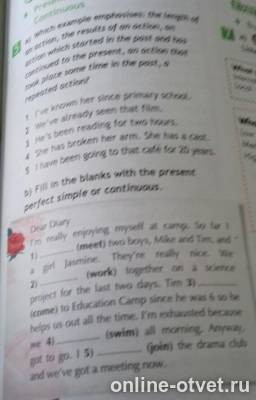 Continuous
5 a) Which example emphasises: the length of
an action, the results of an action, an
action which started in the past and has
continued to the present, an action that
took place some time in the past, a
repeated action?
1 I've known her since primary school.
2 We've already seen that film.
3 He's been reading for two hours.
4 She has broken her arm. She has a cast.
5 I have been going to that café for 20 years.
b) Fill in the blanks with the present
perfect simple or continuous.
Dear Diary
I'm really enjoying myself at camp. So far I
1) (meet) two boys, Mike and Tim, and
a girl Jasmine. They're really nice. We
2) (work) together on a science
project for the last two days. Tim 3)
(come) to Education Camp since he was 6 so he
helps us out all the time. I'm exhausted because
we 4) (swim) all morning. Anyway,
got to go. I 5) (join) the drama club
and we've got a meeting now.
online-otvet.ru